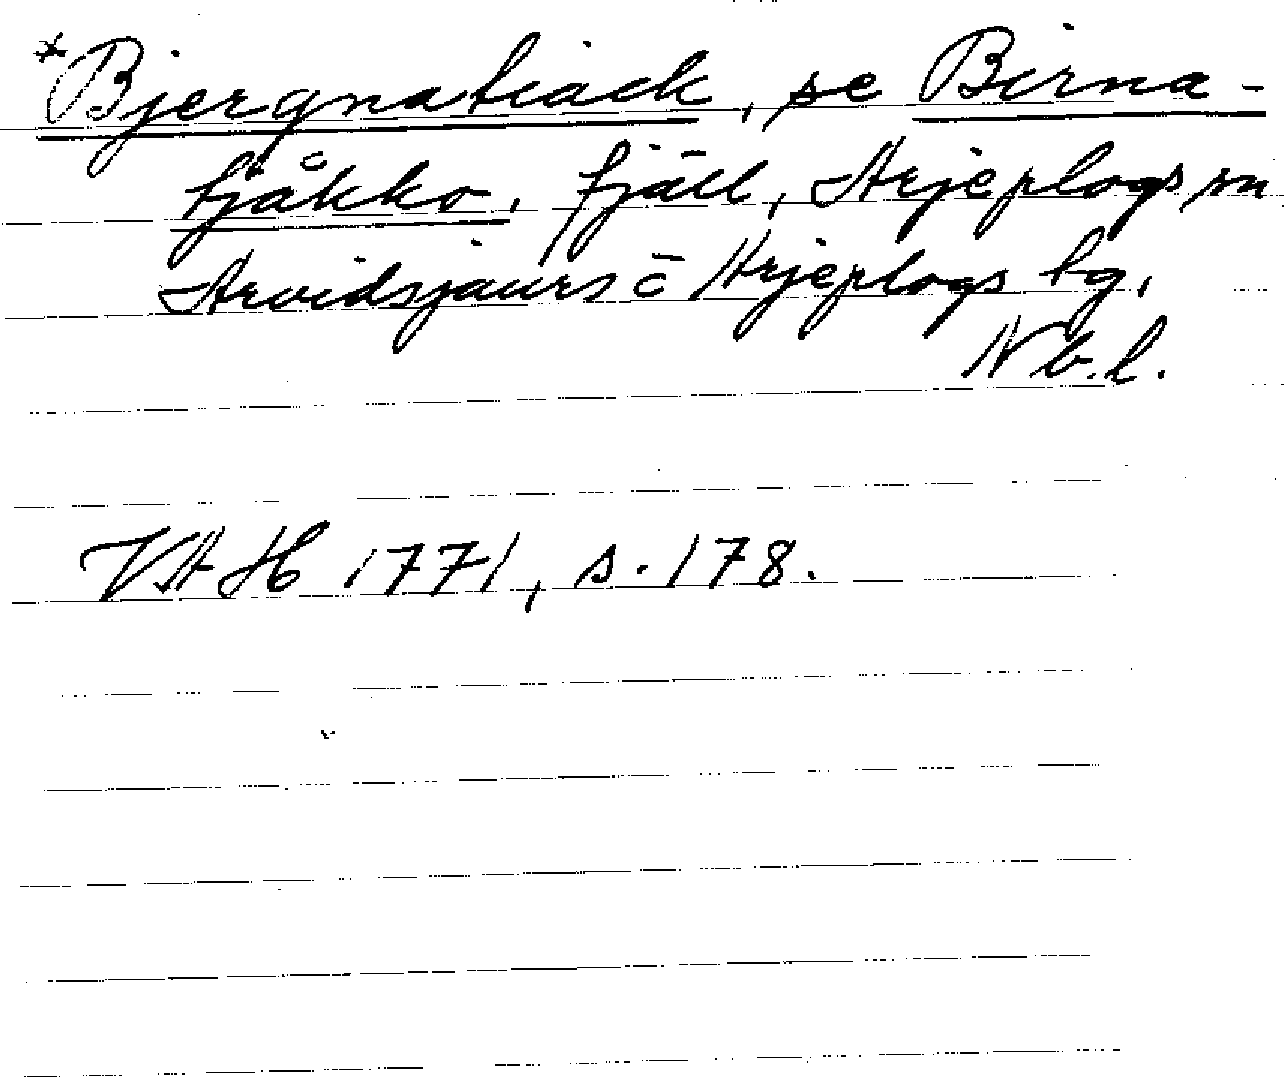 *Bjergnatiack, se Birna-
tjåkko, fjäll, Arjeplogs sn
Arvidsjaurs o Arjeplogs tg,
Nb.l.
VAH 1771, s. 178.